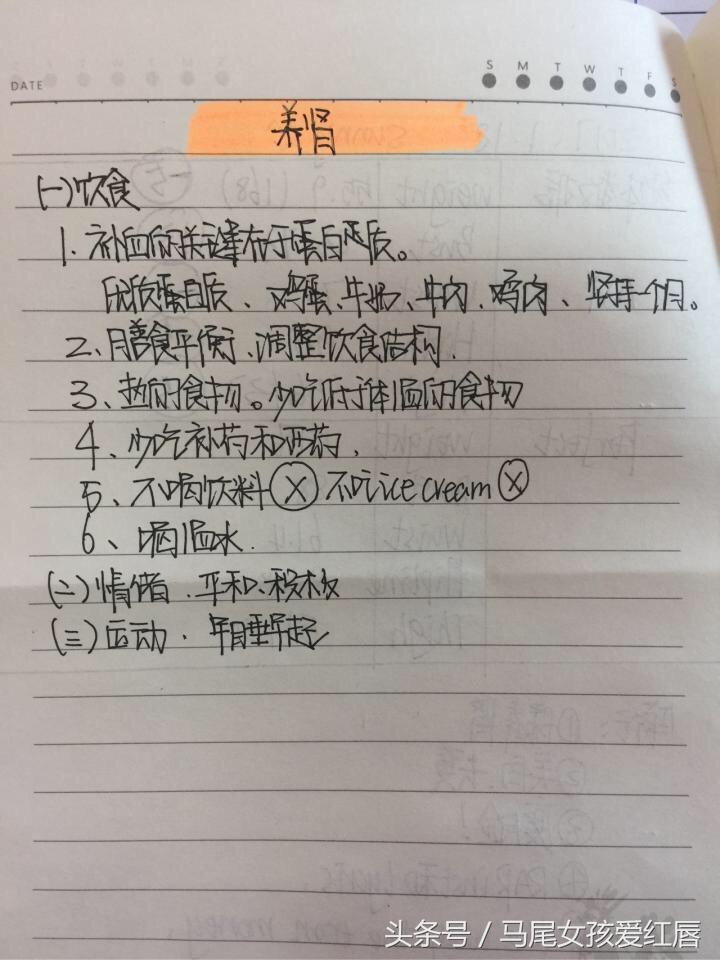 DATE
S M T W T F S
养肾
(一)饮食
1. 补血的关键在于蛋白质。
优质蛋白质、鸡蛋、牛奶、牛肉、鸡肉、坚持一个月。
2、膳食平衡、调整饮食结构.
3、热的食物。少吃低于体温的食物
4、少吃补药和西药.
5、不喝饮料 X 不吃ice cream X
6、喝温水.
(二)情绪.平和、积极
(三)运动.早睡早起
头条号 / 马尾女孩爱红唇